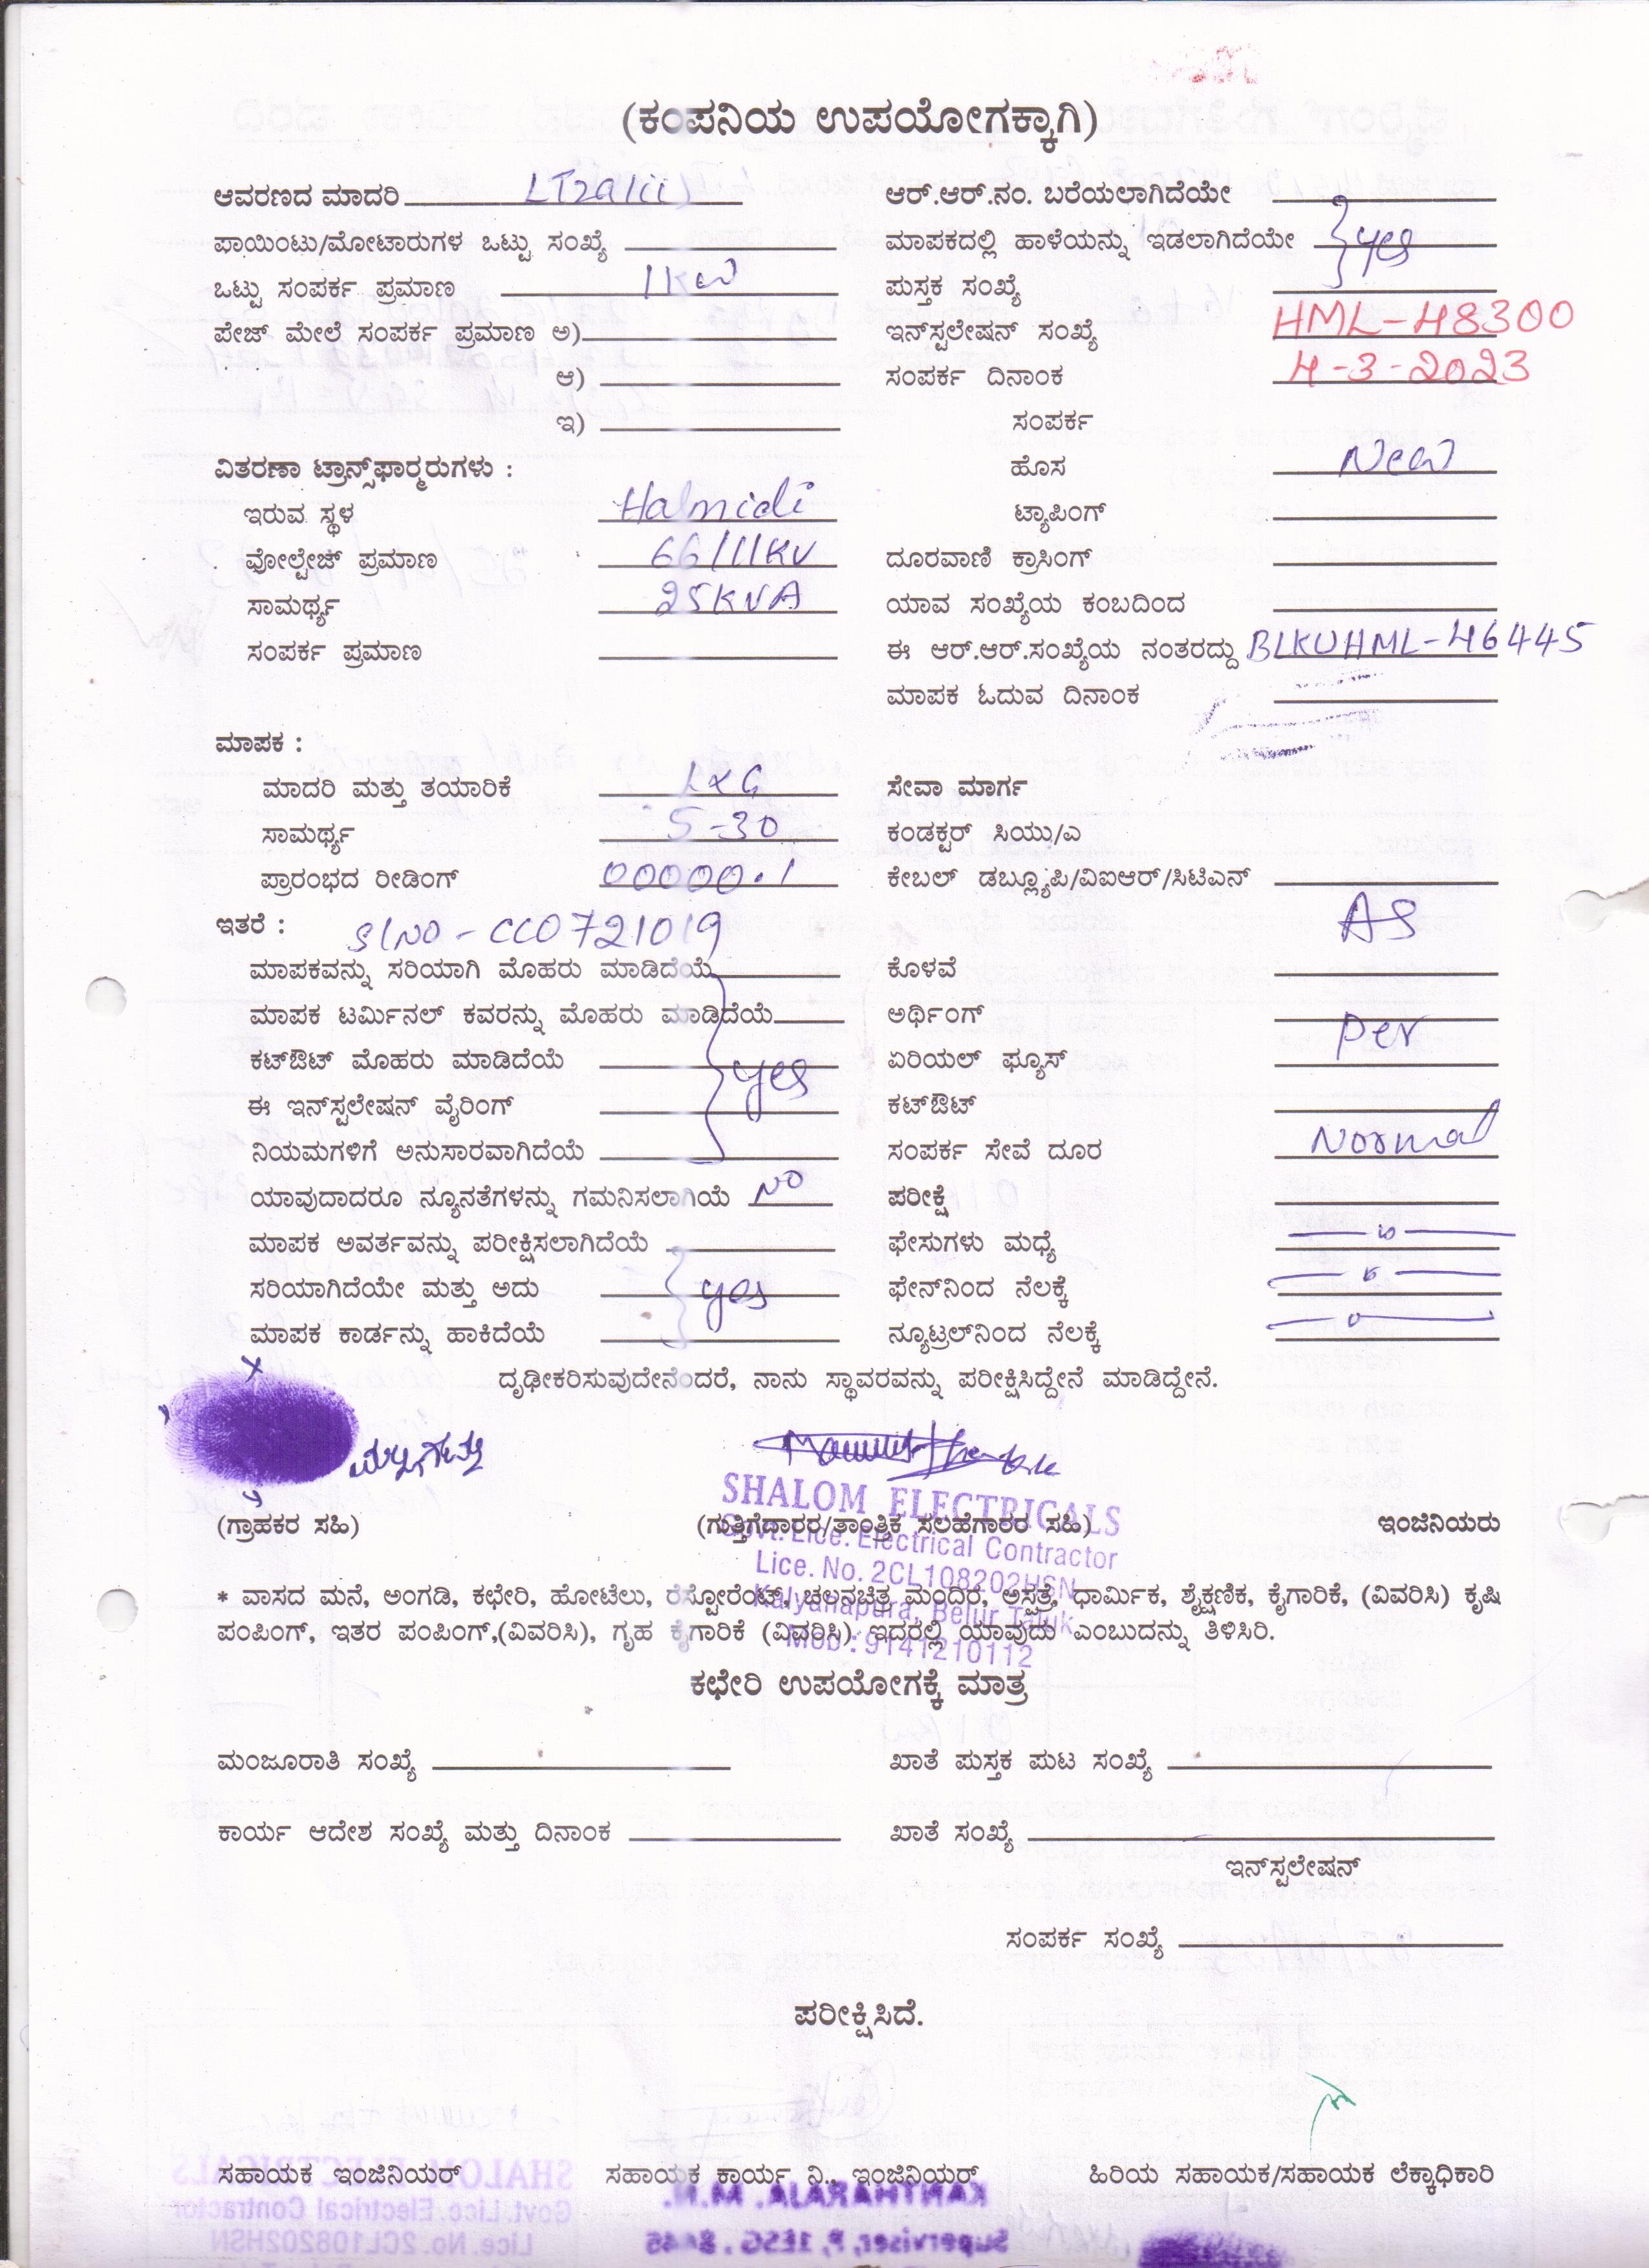 (ಕಂಪನಿಯ ಉಪಯೋಗಕ್ಕಾಗಿ)
ಆವರಣದ ಮಾದರಿ LT2a(ii)
ಪಾಯಿಂಟು/ಮೋಟಾರುಗಳ ಒಟ್ಟು ಸಂಖ್ಯೆ
ಒಟ್ಟು ಸಂಪರ್ಕ ಪ್ರಮಾಣ 1KW
ಪೇಜ್ ಮೇಲೆ ಸಂಪರ್ಕ ಪ್ರಮಾಣ ಅ)
ಆ)
ಇ)
ವಿತರಣಾ ಟ್ರಾನ್ಸ್‌ಫಾರ್‍ಮರುಗಳು :
ಇರುವ ಸ್ಥಳ Halmidi
ಫೋಲ್ಟೇಜ್ ಪ್ರಮಾಣ 66/11KV
ಸಾಮರ್ಥ್ಯ 25KVA
ಸಂಪರ್ಕ ಪ್ರಮಾಣ
ಮಾಪಕ :
ಮಾದರಿ ಮತ್ತು ತಯಾರಿಕೆ L&G
ಸಾಮರ್ಥ್ಯ 5-30
ಪ್ರಾರಂಭದ ರೀಡಿಂಗ್ 00000.1
ಇತರೆ : Sl NO - CC0721019
ಮಾಪಕವನ್ನು ಸರಿಯಾಗಿ ಮೊಹರು ಮಾಡಿದೆಯೆ
ಮಾಪಕ ಟರ್ಮಿನಲ್ ಕವರನ್ನು ಮೊಹರು ಮಾಡಿದೆಯೆ
ಕಟ್‌ಔಟ್ ಮೊಹರು ಮಾಡಿದೆಯೆ yes
ಈ ಇನ್‌ಸ್ಟಲೇಷನ್ ವೈರಿಂಗ್
ನಿಯಮಗಳಿಗೆ ಅನುಸಾರವಾಗಿದೆಯೆ
ಯಾವುದಾದರೂ ನ್ಯೂನತೆಗಳನ್ನು ಗಮನಿಸಲಾಗಿಯೆ NO
ಮಾಪಕ ಅವರ್ತವನ್ನು ಪರೀಕ್ಷಿಸಲಾಗಿದೆಯೆ
ಸರಿಯಾಗಿದೆಯೇ ಮತ್ತು ಅದು yes
ಮಾಪಕ ಕಾರ್ಡನ್ನು ಹಾಕಿದೆಯೆ
ಆರ್.ಆರ್.ನಂ. ಬರೆಯಲಾಗಿದೆಯೇ
ಮಾಪಕದಲ್ಲಿ ಹಾಳೆಯನ್ನು ಇಡಲಾಗಿದೆಯೇ yes
ಪುಸ್ತಕ ಸಂಖ್ಯೆ
ಇನ್‌ಸ್ಟಲೇಷನ್ ಸಂಖ್ಯೆ HML-48300
ಸಂಪರ್ಕ ದಿನಾಂಕ 4-3-2023
ಸಂಪರ್ಕ
ಹೊಸ New
ಟ್ಯಾಪಿಂಗ್
ದೂರವಾಣಿ ಕ್ರಾಸಿಂಗ್
ಯಾವ ಸಂಖ್ಯೆಯ ಕಂಬದಿಂದ
ಈ ಆರ್.ಆರ್.ಸಂಖ್ಯೆಯ ನಂತರದ್ದು BLKUHML-46445
ಮಾಪಕ ಓದುವ ದಿನಾಂಕ
ಸೇವಾ ಮಾರ್ಗ
ಕಂಡಕ್ಟರ್ ಸಿಯು/ಎ
ಕೇಬಲ್ ಡಬ್ಲ್ಯೂಪಿ/ವಿಐಆರ್/ಸಿಟಿಎನ್
AS
ಕೊಳವೆ
ಅರ್ಥಿಂಗ್
ಏರಿಯಲ್ ಫ್ಯೂಸ್ Per
ಕಟ್‌ಔಟ್
ಸಂಪರ್ಕ ಸೇವೆ ದೂರ Normal
ಪರೀಕ್ಷೆ
ಫೇಸುಗಳು ಮಧ್ಯೆ
ಫೇನ್‌ನಿಂದ ನೆಲಕ್ಕೆ
ನ್ಯೂಟ್ರಲ್‌ನಿಂದ ನೆಲಕ್ಕೆ
ದೃಢೀಕರಿಸುವುದೇನೆಂದರೆ, ನಾನು ಸ್ಥಾವರವನ್ನು ಪರೀಕ್ಷಿಸಿದ್ದೇನೆ ಮಾಡಿದ್ದೇನೆ.
SHALOM ELECTRICALS
(ಗ್ರಾಹಕರ ಸಹಿ) (ಗುತ್ತಿಗೆದಾರರ/ತಾಂತ್ರಿಕ ಸಲಹೆಗಾರರ ಸಹಿ) ಇಂಜಿನಿಯರು
Govt. Lice. Electrical Contractor
Lice. No. 2CL108202HSN
Kalyanapura, Belur Taluk
Mob : 9141210112
* ವಾಸದ ಮನೆ, ಅಂಗಡಿ, ಕಛೇರಿ, ಹೋಟೆಲು, ರೆಸ್ಟೋರೆಂಟ್, ಚಲನಚಿತ್ರ ಮಂದಿರ, ಅಸ್ಪತ್ರೆ, ಧಾರ್ಮಿಕ, ಶೈಕ್ಷಣಿಕ, ಕೈಗಾರಿಕೆ, (ವಿವರಿಸಿ) ಕೃಷಿ
ಪಂಪಿಂಗ್, ಇತರ ಪಂಪಿಂಗ್,(ವಿವರಿಸಿ), ಗೃಹ ಕೈಗಾರಿಕೆ (ವಿವರಿಸಿ) ಇದರಲ್ಲಿ ಯಾವುದು ಎಂಬುದನ್ನು ತಿಳಿಸಿರಿ.
ಕಛೇರಿ ಉಪಯೋಗಕ್ಕೆ ಮಾತ್ರ
ಮಂಜೂರಾತಿ ಸಂಖ್ಯೆ ಖಾತೆ ಪುಸ್ತಕ ಪುಟ ಸಂಖ್ಯೆ
ಕಾರ್ಯ ಆದೇಶ ಸಂಖ್ಯೆ ಮತ್ತು ದಿನಾಂಕ ಖಾತೆ ಸಂಖ್ಯೆ
ಇನ್‌ಸ್ಟಲೇಷನ್
ಸಂಪರ್ಕ ಸಂಖ್ಯೆ
ಪರೀಕ್ಷಿಸಿದೆ.
ಸಹಾಯಕ ಇಂಜಿನಿಯರ್ ಸಹಾಯಕ ಕಾರ್ಯ ನಿ., ಇಂಜಿನಿಯರ್ ಹಿರಿಯ ಸಹಾಯಕ/ಸಹಾಯಕ ಲೆಕ್ಕಾಧಿಕಾರಿ